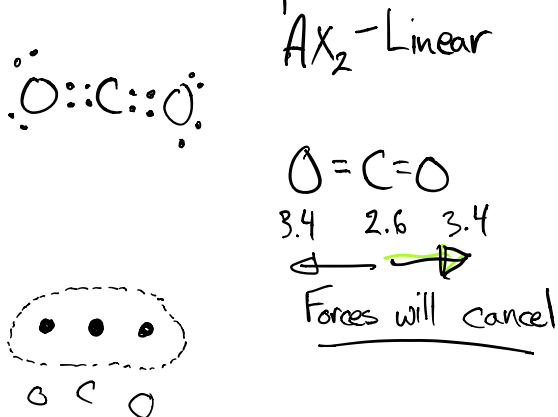 AX₂ - Linear
O::C::O
O=C=O
3.4 2.6 3.4
Forces will cancel
O C O